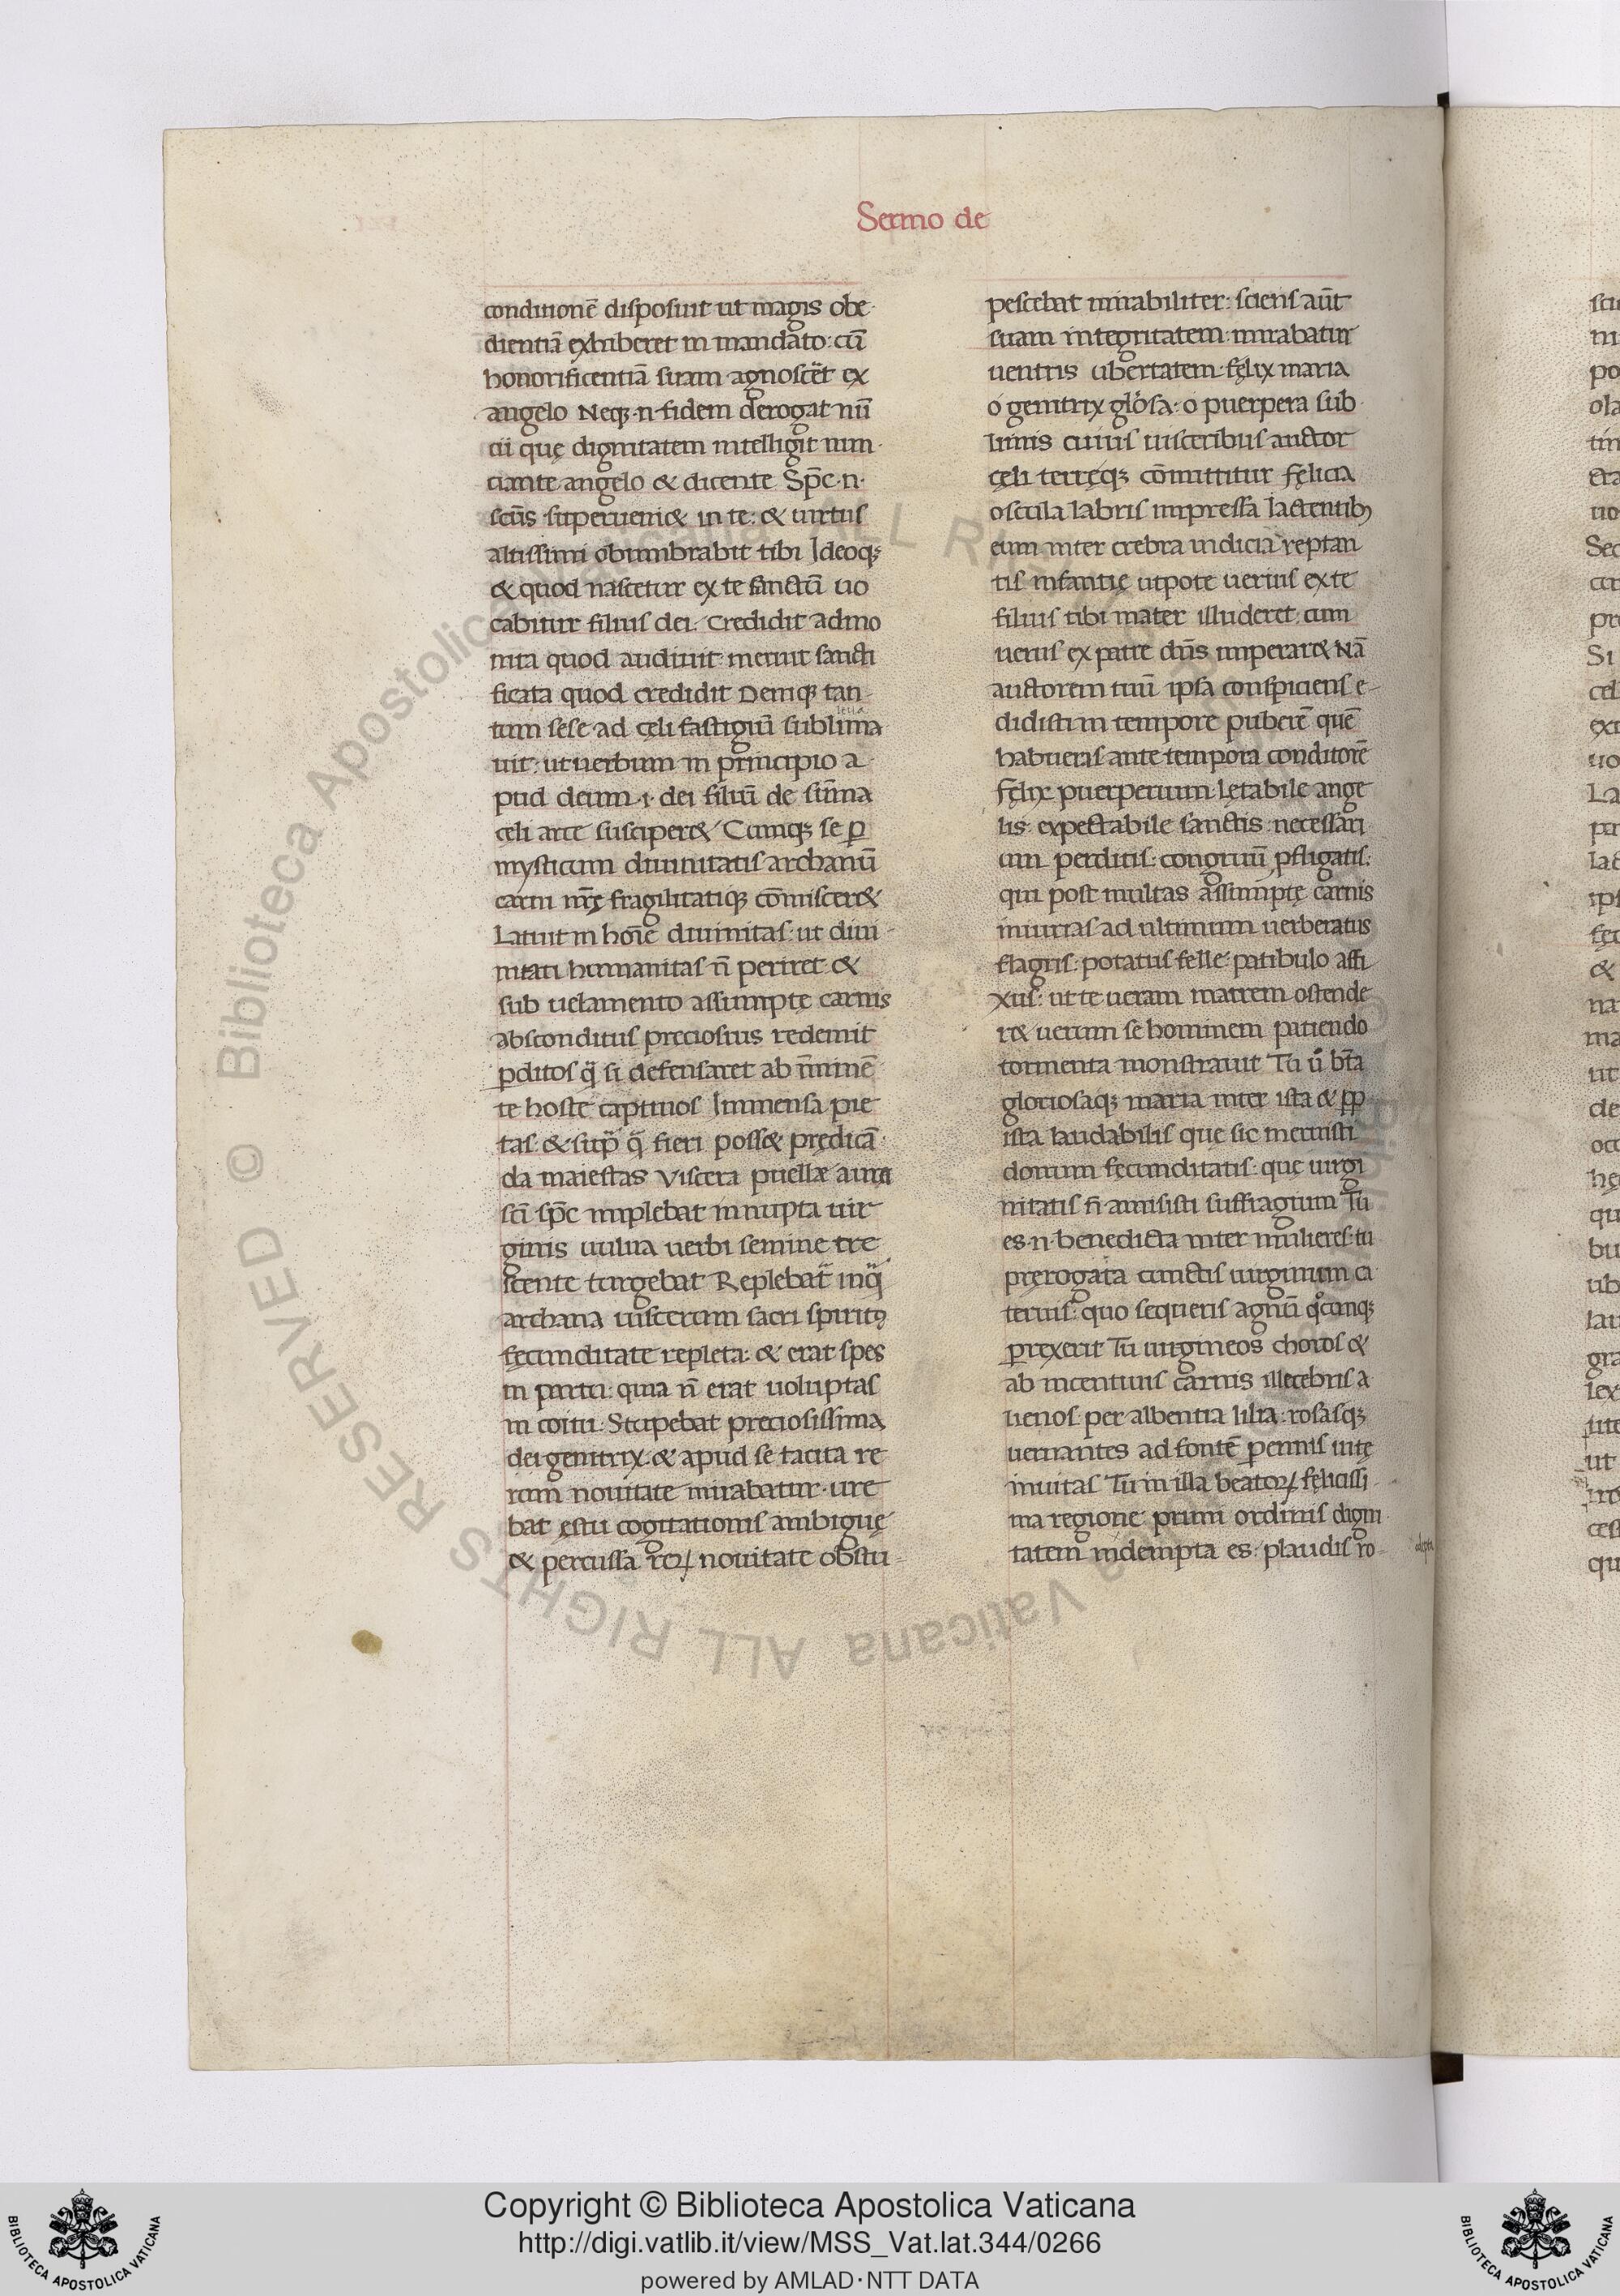 Sermo de
conditionē disposuit ut magis obe
dientiā exhiberet in mandato: cū
honorificentiā suam agnoscēt ex
angelo Neq; n fidem derogat nū
cii quę dignitatem intelligit nun
ciante angelo & dicente Sp̄c n
scūs superueni& in te: & uirtus
altissimi obumbrabit tibi Ideoq;
& quod nascetur ex te sanctū uo
cabitur filius dei. Credidit admo
nita quod audiuit meruit sancti
ficata quod credidit Deniq; tan
tum sese ad cęli fastigiū sublima
uit: ut uerbum in principio a
pud deum .i. dei filiū de sūma
cęli arce susciper& Cumq; se p
mysticum diuinitatis archanū
carni nr̄ę fragilitatiq; cōmiscer&
Latuit in hoīe diuinitas: ut diui
nitati humanitas n̄ periret &
sub uelamento assumptę carnis
absconditus preciosius redemit
pditos q̄ si defensaret ab inminē
te hoste captiuos Immensa pie
tas & sup q̄ fieri poss& prędicā
da maiestas Viscera puellæ aura
scī sp̄c implebat innupta uir
ginis uulua uerbi semine cre
scente turgebat Replebat inq̄
archana uiscerum sacri spiritꝰ
fęcunditate repleta: & erat spes
in partu: quia n̄ erat uoluptas
in coitu: Stupebat preciosissima
dei genitrix: & apud se tacita re
rum nouitate mirabatur ure
bat ęstu cogitationis ambiguę
& percussa reꝝ nouitate obstu
pescebat mirabiliter: sciens aūt
suam integritatem mirabatur
uentris ubertatem fęlix maria
o genitrix glosa: o puerpera sub
limis cuius uisceribus auctor
cęli terręq; cōmittitur fęlicia
oscula labris impressa lactentibꝰ
eum inter crebra indicia reptan
tis infantię utpote uerius ex te
filius tibi mater illuderet: cum
uerus ex patre dn̄s imperar& Nā
auctorem tuū ipsa conspiciens e
didisti in tempore puberē quē
habueris ante tempora conditorē
Fęlix puerperium lętabile ange
lis expectabile sanctis necessari
um perditis: congruū pfligatis:
qui post multas assumptę carnis
iniurias ad ultimum uerberatus
flagris: potatus felle: patibulo affi
xus: ut te ueram matrem ostende
r& uerum se hominem patiendo
tormenta monstrauit Tu ū bt̄a
gloriosaq; maria inter ista & pp
ista laudabilis que sic meruisti
donum fęcunditatis: quę uirgi
nitatis n̄ amisisti suffragium Tu
es n benedicta inter mulieres: tu
prerogata cunctis uirginum ca
teruis: quo sequeris agnū q̊cumq;
prexerit Tu uirgineos choros &
ab incentiuis carnis illecebris a
lienos per albentia lilia: rosasq;
uernantes ad fontē pennis uitę
inuitas Tu in illa beatoꝝ felicissi
ma regione primi ordinis digni
tatem indempta es: plaudis ro
Copyright © Biblioteca Apostolica Vaticana
http://digi.vatlib.it/view/MSS_Vat.lat.344/0266
powered by AMLAD·NTT DATA